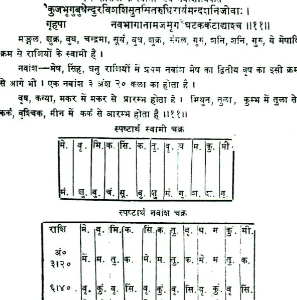 कुजभृगुबुधेन्दुरविशशिसुतसितरुधिरार्यमन्दशनिजीवाः ।
गृहपा नवभागानामजमृग घटकर्कटाद्याश्च ॥११॥
मङ्गल, शुक्र, बुध, चन्द्रमा, सूर्य, बुध, शुक्र, मंगल, गुरु, शनि, शनि, गुरु, ये मेषादि
क्रम से राशियों के स्वामी हैं ।
नवांश—मेष, सिंह, धनु राशियों में प्रथम नवांश मेष का द्वितीय वृष का इसी क्रम
से आगे भी । एक नवांश ३ अंश २० कला का होता है ।
वृष, कन्या, मकर में मकर से प्रारम्भ होता है । मिथुन, तुला, कुम्भ में तुला से
कर्क, वृश्चिक, मीन में कर्क से आरम्भ होता है ॥११॥
स्पष्टार्थ स्वामी चक्र
मे. वृ. मि. क. सि. क. तु. वृ. ध. म. कु. मी
मं. शु. बु. चं. सू. बु. शु. मं. गु. श. श. गु.
स्पष्टार्थ नवांश चक्र
राशि मे. वृ. मि. क. सि. क. तु. वृ. ध. म. कु. मी.
अं०
३।२० मे. म. तु. क. मे. म. तु. क. मे. म. तु. क.
६।४० वृ. कुं. वृ. सि. वृ. कुं. वृ. सि. वृ. कुं. वृ. सि.